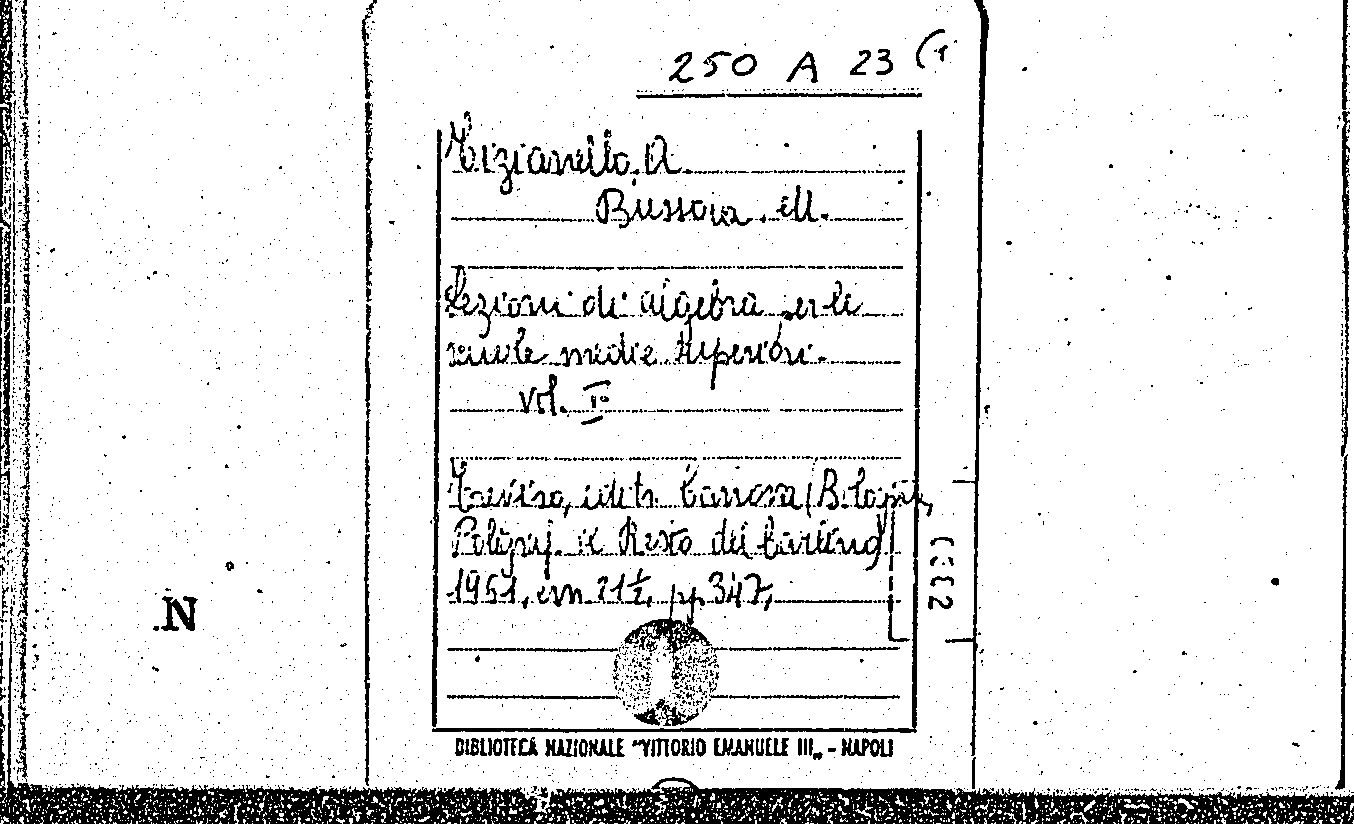 250 A 23 (1
Tizianello. A.
Bussoia. M.
Lezioni di algebra per le
scuole medie superiori.
vol. I°
Treviso, edit. Canova (Bologna,
Poligraf. il Resto del Carlino)
1951, cm 21½, pp 347,
.N
BIBLIOTECA NAZIONALE "VITTORIO EMANUELE III„ - NAPOLI